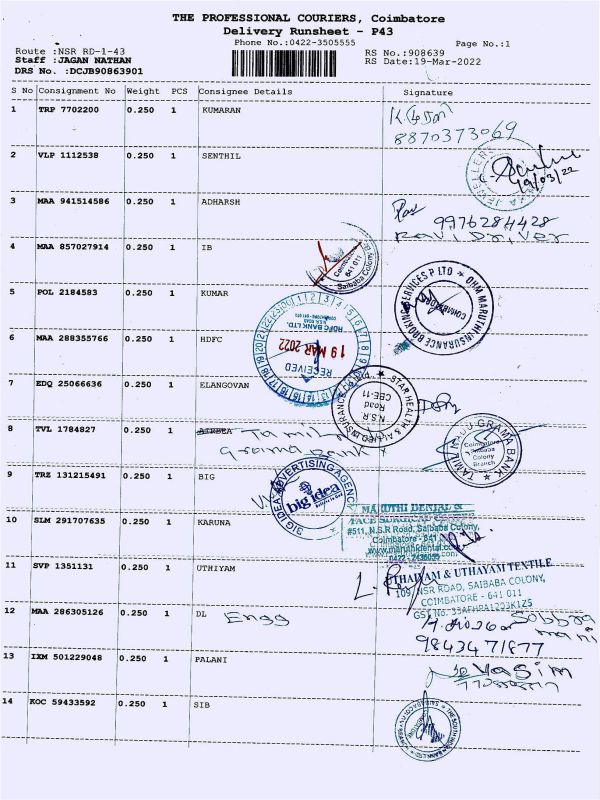 THE PROFESSIONAL COURIERS, Coimbatore
Delivery Runsheet - P43
Phone No.:0422-3505555
Page No.:1
Route :NSR RD-1-43
RS No.:908639
Staff :JAGAN NATHAN
RS Date:19-Mar-2022
DRS No. :DCJB90863901
S No Consignment No Weight PCS Consignee Details Signature
1 TRP 7702200 0.250 1 KUMARAN
8870373069
2 VLP 1112538 0.250 1 SENTHIL
19/03/22
3 MAA 941514586 0.250 1 ADHARSH
9976284428
Ravi Driver
4 MAA 857027914 0.250 1 IB
Coimbatore
641 011
Saibaba Colony
OHM MARUTHI INSURANCE BROKING SERVICES P LTD
COIMBATORE
5 POL 2184583 0.250 1 KUMAR
6 MAA 288355766 0.250 1 HDFC
HDFC BANK LTD.
N.S.R. ROAD
19 MAR 2022
RECEIVED
7 EDQ 25066636 0.250 1 ELANGOVAN
STAR HEALTH & ALLIED INSURANCE
N.S.R
Road
CBE-11
8 TVL 1784827 0.250 1 Tamil
Grama Bank
TAMIL NADU GRAMA BANK
Coimbatore
Saibaba
Colony
Branch
9 TRZ 131215491 0.250 1 BIG
BIG IDEA ADVERTISING AGENCY
big idea
10 SLM 291707635 0.250 1 KARUNA
MARUTHI DENTAL &
FACE SURGICAL
#511, N.S.R Road, Saibaba Colony,
Coimbatore - 641
www.maruthidental
11 SVP 1351131 0.250 1 UTHIYAM
UTHAYAM & UTHAYAM TEXTILE
109, NSR ROAD, SAIBABA COLONY,
COIMBATORE - 641 011
12 MAA 286305126 0.250 1 DL Engg
Subbra
mani
9843471877
13 IXM 501229048 0.250 1 PALANI
Vasim
14 KOC 59433592 0.250 1 SIB
THE SOUTH INDIAN BANK LTD